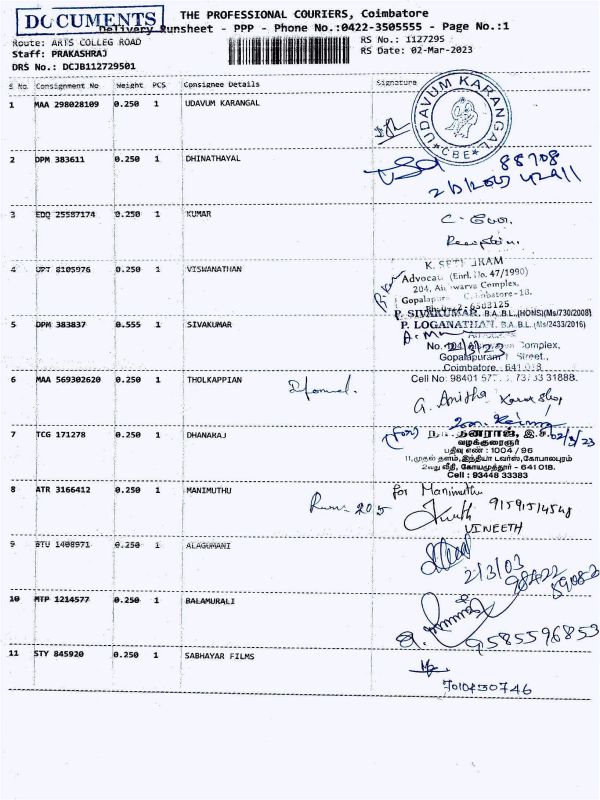 DOCUMENTS
THE PROFESSIONAL COURIERS, Coimbatore
Delivery Runsheet - PPP - Phone No.:0422-3505555 - Page No.:1
Route: ARTS COLLEG ROAD
RS No.: 1127295
Staff: PRAKASHRAJ
RS Date: 02-Mar-2023
DRS No.: DCJB112729501
S No. Consignment No Weight PCS Consignee Details Signature
1 MAA 298028109 0.250 1 UDAVUM KARANGAL
UDAVUM KARANGAL
CBE
2 DPM 383611 0.250 1 DHINATHAYAL
88708
42911
3 EDQ 25587174 0.250 1 KUMAR
Reception.
4 UPT 8105976 0.250 1 VISWANATHAN
K. SETHURAM
Advocate (Enrl. No. 47/1990)
204, Complex,
Gopalapuram Coimbatore-18.
5 DPM 383837 0.555 1 SIVAKUMAR
P. SIVAKUMAR, B.A.B.L.,(HONS)(Ms/730/2008)
P. LOGANATHAN, B.A.B.L.(Ms/2433/2016)
2/3/23
No. Complex,
Gopalapuram Street.,
Coimbatore - 641 018.
Cell No: 98401 31888.
6 MAA 569302620 0.250 1 THOLKAPPIAN
G. Anitha
7 TCG 171278 0.250 1 DHANARAJ
(for) தனராஜ், 02/3/23
வழக்குரைஞர்
பதிவு எண் : 1004 / 96
11,முதல் தளம்,இந்தியா டவர்ஸ்,கோபாலபுரம்
2வது வீதி, கோயமுத்தூர் - 641 018.
Cell : 93448 33383
8 ATR 3166412 0.250 1 MANIMUTHU
for Manimuthu
9159151454
VINEETH
9 BTU 1408971 0.250 1 ALAGUMANI
2/3/03
98422
59082
10 MTP 1214577 0.250 1 BALAMURALI
9585596853
11 STY 845920 0.250 1 SABHAYAR FILMS
7010450746